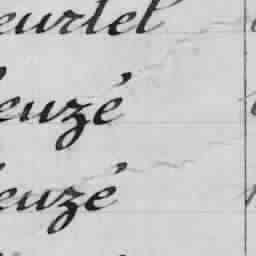 eurtel
euzé
euzé